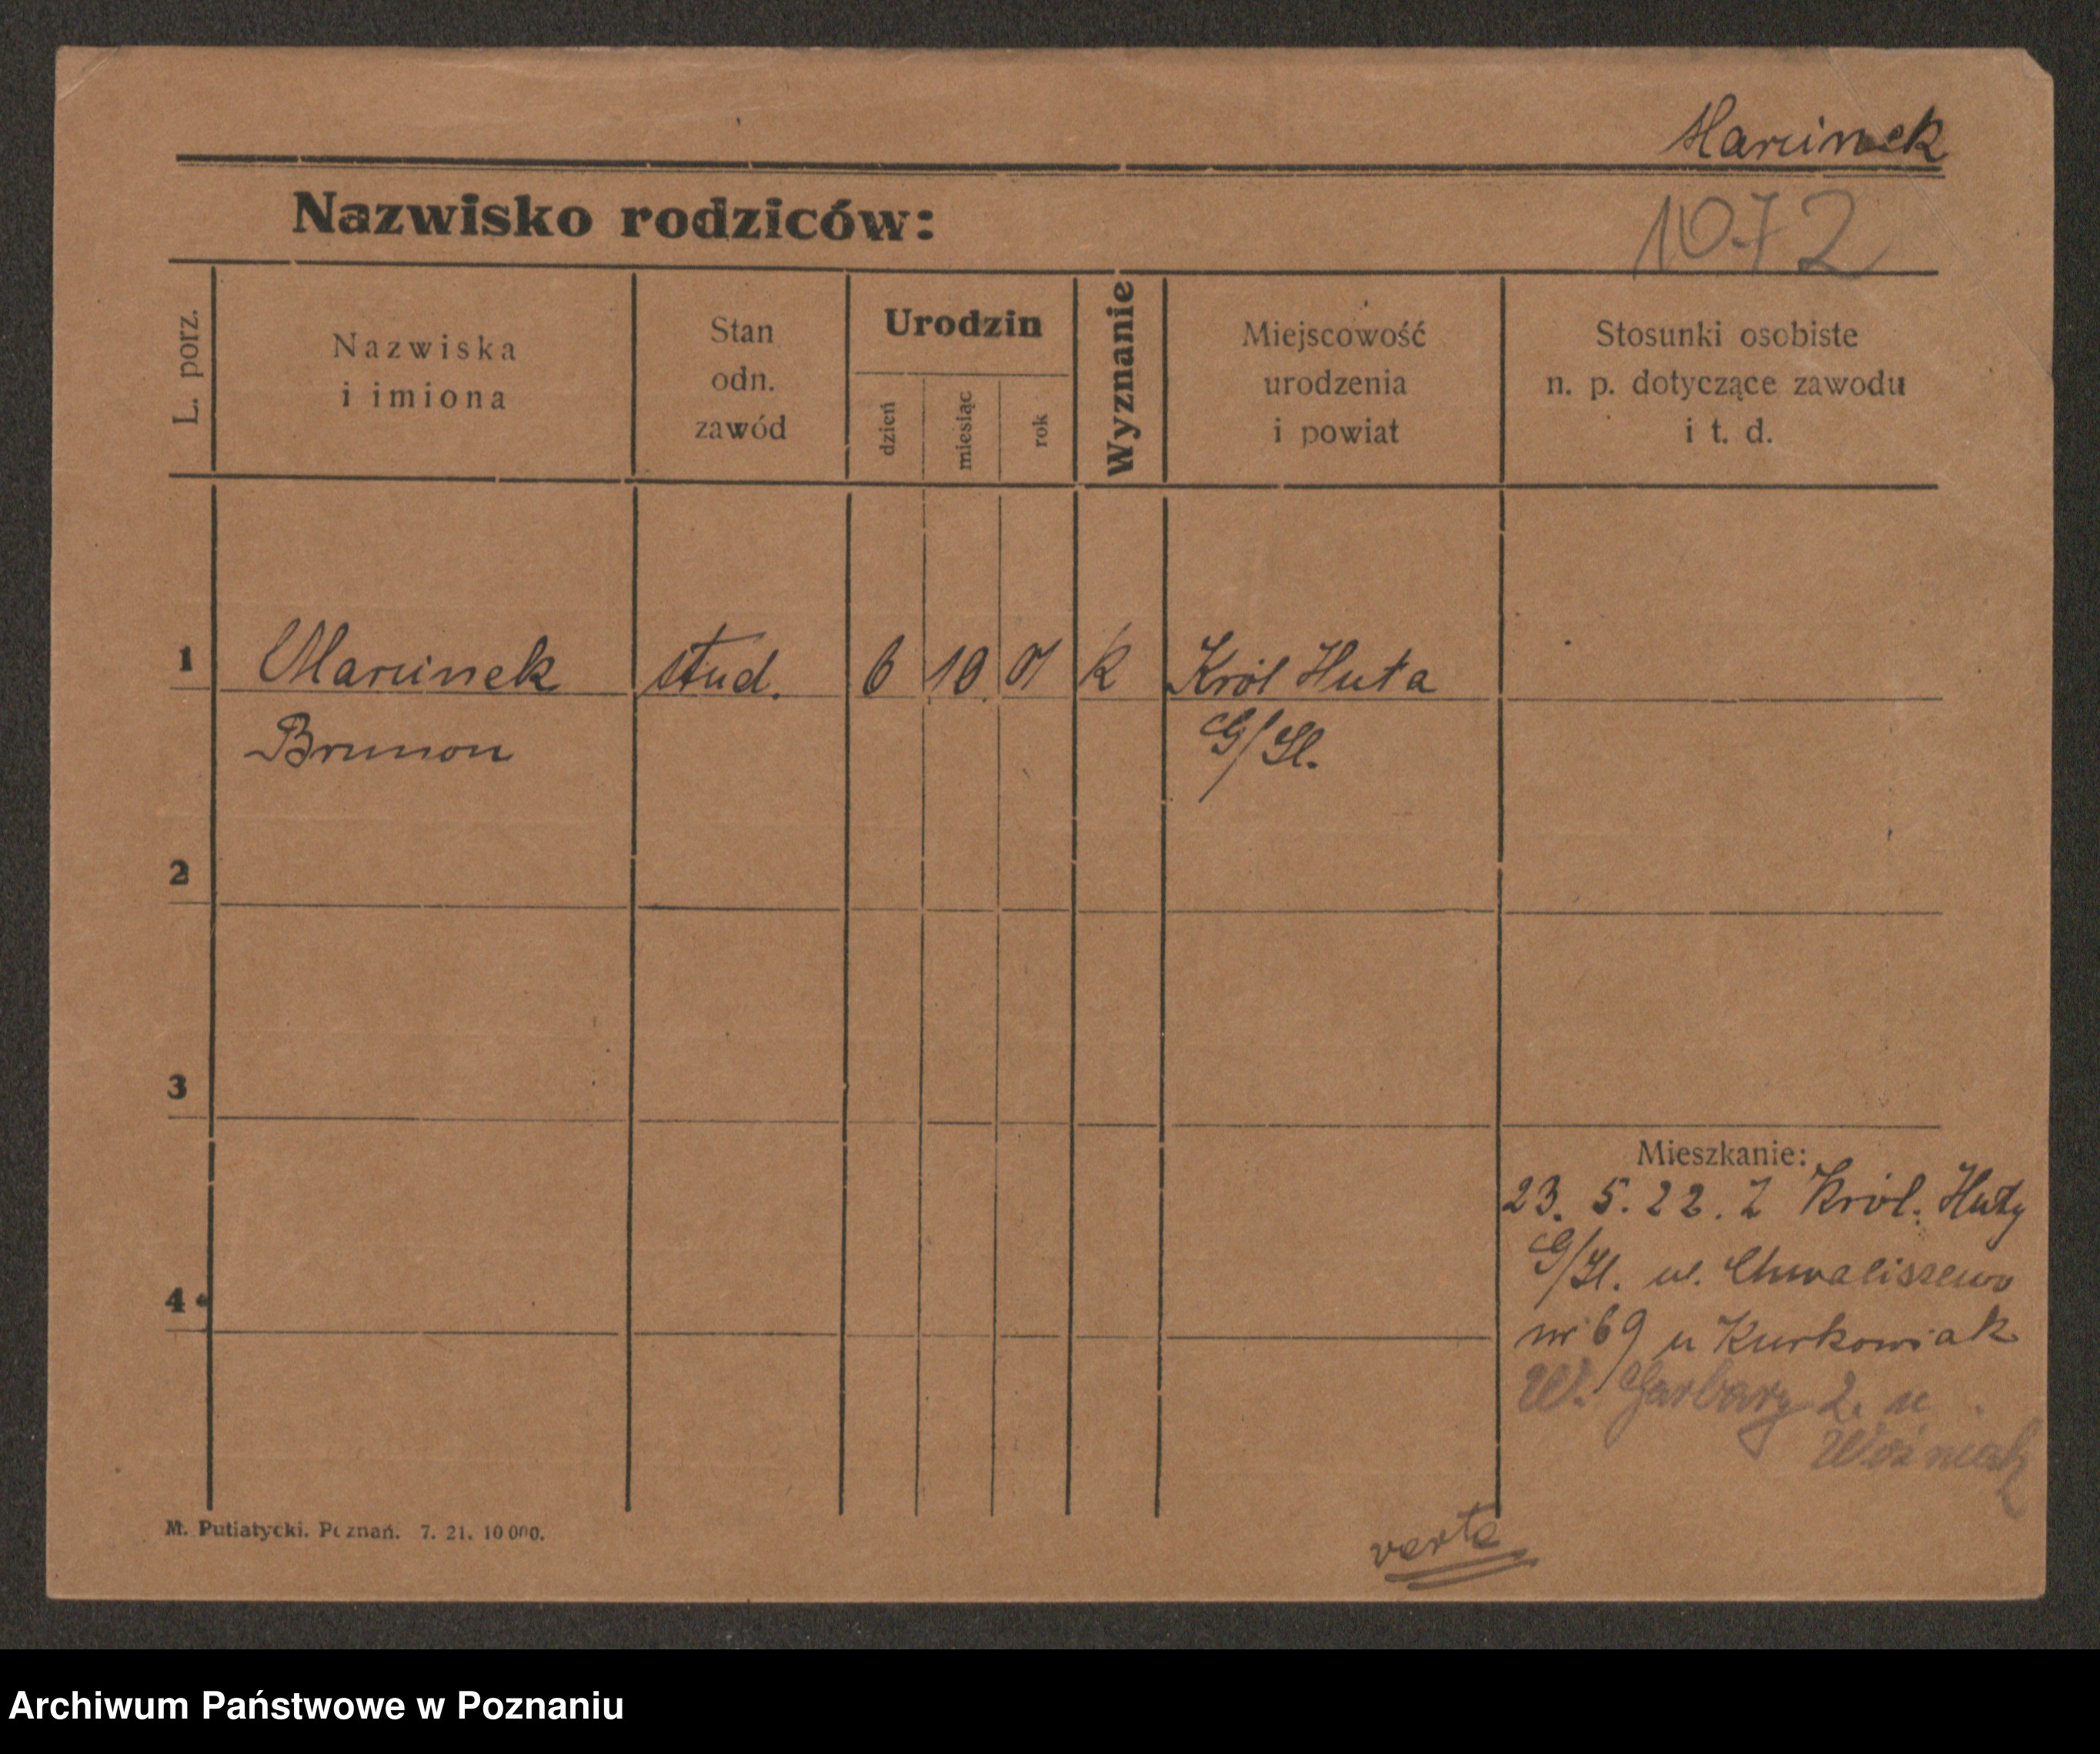 Marcinek
Nazwisko rodziców:
1072
L. porz.
Nazwiska
i imiona
Stan
odn.
zawód
Urodzin
dzień
miesiąc
rok
Wyznanie
Miejscowość
urodzenia
i powiat
Stosunki osobiste
n. p. dotyczące zawodu
i t. d.
1 Marcinek stud. 6 10 01 k Król Huta
Brunon G/Sl.
2
3
Mieszkanie:
23. 5. 22. Z Król. Huty
G/Sl. ul. Chwaliszewo
4
nr 69 u Kurkowiak
W. Garbary 2. u
Woźniak
verte
M. Putiatycki. Poznań. 7. 21. 10 000.
Archiwum Państwowe w Poznaniu